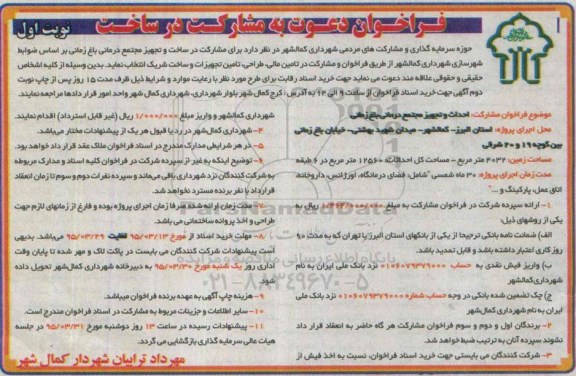 فراخوان دعوت به مشارکت در ساخت
نوبت اول
حوزه سرمایه گذاری و مشارکت های مردمی شهرداری کمالشهر در نظر دارد برای مشارکت در ساخت و تجهیز مجتمع درمانی باغ زمانی بر اساس ضوابط
شهرسازی شهرداری کمالشهر از طریق فراخوان و مشارکت در تامین مالی، طراحی، تامین تجهیزات و ساخت شریک انتخاب نماید. بدین وسیله از کلیه اشخاص
حقیقی و حقوقی علاقه مند دعوت می نماید جهت خرید اسناد رقابت برای طرح مورد نظر با رعایت موارد و شرایط ذیل ظرف مدت ۱۵ روز پس از چاپ نوبت
دوم آگهی جهت خرید اسناد فراخوان از ساعت ۹ الی ۱۲ به آدرس: کرج کمال شهر بلوار شهرداری، شهرداری کمال شهر واحد امور قرار دادها مراجعه نمایند.
موضوع فراخوان مشارکت: احداث و تجهیز مجتمع درمانی باغ زمانی
محل اجرای پروژه: استان البرز- کمالشهر- میدان شهید بهشتی- خیابان باغ زمانی
بین کوچه ۱۹ و ۲۰ شرقی
مساحت زمین: ۲۰۳۲ متر مربع - مساحت کل احداثات: ۱۲۵۶۰ متر مربع در ۶ طبقه
مدت زمان اجرای پروژه: ۳۰ ماه شمسی "شامل: فضای درمانگاه، اورژانس، داروخانه
اتاق عمل، پارکینگ و ..."
۱- ارائه سپرده شرکت در فراخوان مشارکت به مبلغ ریال به
یکی از روشهای ذیل:
الف) ضمانت نامه بانکی ترجیحا از یکی از بانکهای استان البرز یا تهران که به مدت ۹۰
روز کاری اعتبار داشته باشد و قابل تمدید باشد.
ب) واریز فیش نقدی به حساب ۰۱۰۶۰۷۹۳۷۹۰۰۰ نزد بانک ملی ایران به نام
شهرداری کمالشهر
ج) چک تضمین شده بانکی در وجه حساب شماره ۰۱۰۶۰۷۹۳۷۹۰۰۰ نزد بانک ملی
ایران به نام شهرداری کمال شهر
۲- برندگان اول و دوم و سوم فراخوان مشارکت هر گاه حاضر به انعقاد قرار داد
نشوند سپرده آنان به ترتیب ضبط خواهد شد.
۳- شرکت کنندگان می بایستی جهت خرید اسناد فراخوان، نسبت به اخذ فیش از
شهرداری کمالشهر و واریز مبلغ ۱/۰۰۰/۰۰۰ ریال (غیر قابل استرداد) اقدام نمایند.
۴- شهرداری کمال شهر در رد یا قبول هر یک از پیشنهادات مختار می باشد.
۵- در هر شرایطی مدارک مندرج در اسناد فراخوان ملاک عقد قرار داد خواهد بود.
۶- توضیح اینکه به غیر از سپرده شرکت در فراخوان کلیه اسناد و مدارک مربوطه
به شرکت کنندگان نزد شهرداری باقی می‌ماند و سپرده نفرات دوم و سوم تا زمان انعقاد
قرارداد با نفر برنده مسترد نخواهد شد.
۷- مدت زمان ارائه شده صرفا زمان اجرای پروژه بوده و فارغ از زمانهای لازم جهت
طراحی و اخذ پروانه ساختمانی می باشد.
۸- مهلت خرید اسناد از مورخ ۹۵/۰۳/۱۳ لغایت ۹۵/۰۳/۲۹ می‌باشد. بدیهی
است پیشنهادات شرکت کنندگان می بایست در پاکت لاک و مهر شده تا پایان وقت
اداری روز یک شنبه مورخ ۹۵/۰۳/۳۰ به دبیرخانه شهرداری کمال‌شهر تحویل داده
شود
۹- هزینه چاپ آگهی به عهده برنده فراخوان میباشد.
۱۰- سایر اطلاعات و جزییات مربوط به مشارکت در اسناد فراخوان مندرج است.
۱۱- پیشنهادات رسیده در ساعت ۱۳ روز دوشنبه مورخ ۹۵/۰۳/۳۱ در جلسه
هیات عالی سرمایه گذاری بازگشایی می گردد.
مهرداد ترابیان شهردار کمال شهر
ParsNamadData
پایگاه اطلاع رسانی مناقصه و مزایده
۰۲۱-۸۸۳۴۹۶۷۰-۵